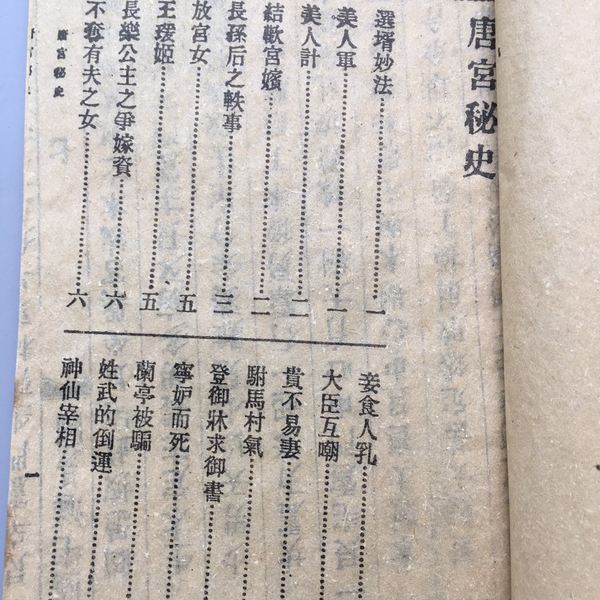 唐宮秘史
選壻妙法……一
美人軍……一
美人計……二
結歡宮嬪……二
長孫后之軼事……三
放宮女……五
王瑗姬……五
長樂公主之爭嫁資……六
不奪有夫之女……六
妾食人乳……
大臣互嘲……
貴不易妻……
駙馬村氣……
登御牀求御書……
寧妒而死……
蘭亭被騙……
姓武的倒運……
神仙宰相……
唐宮秘史
一